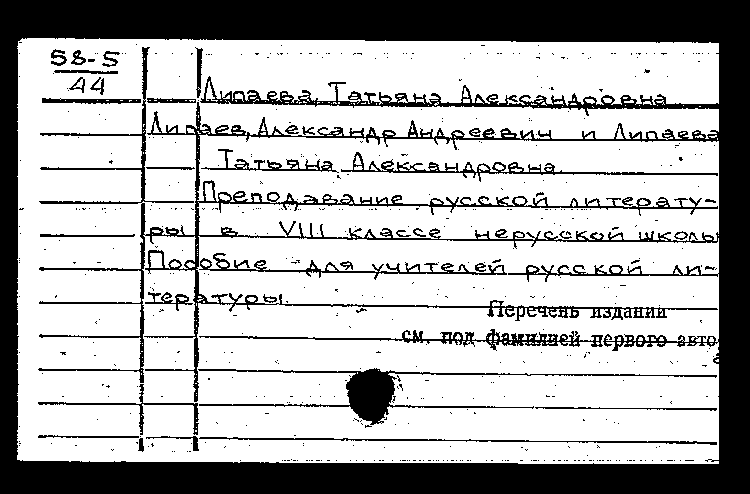 58-5
44
Липаева, Татьяна Александровна
Липаев, Александр Андреевич и Липаева
Татьяна Александровна.
Преподавание русской литерату-
ры в VIII классе нерусской школы
Пособие для учителей русской ли-
тературы.
Перечень изданий
см. под фамилией первого авто